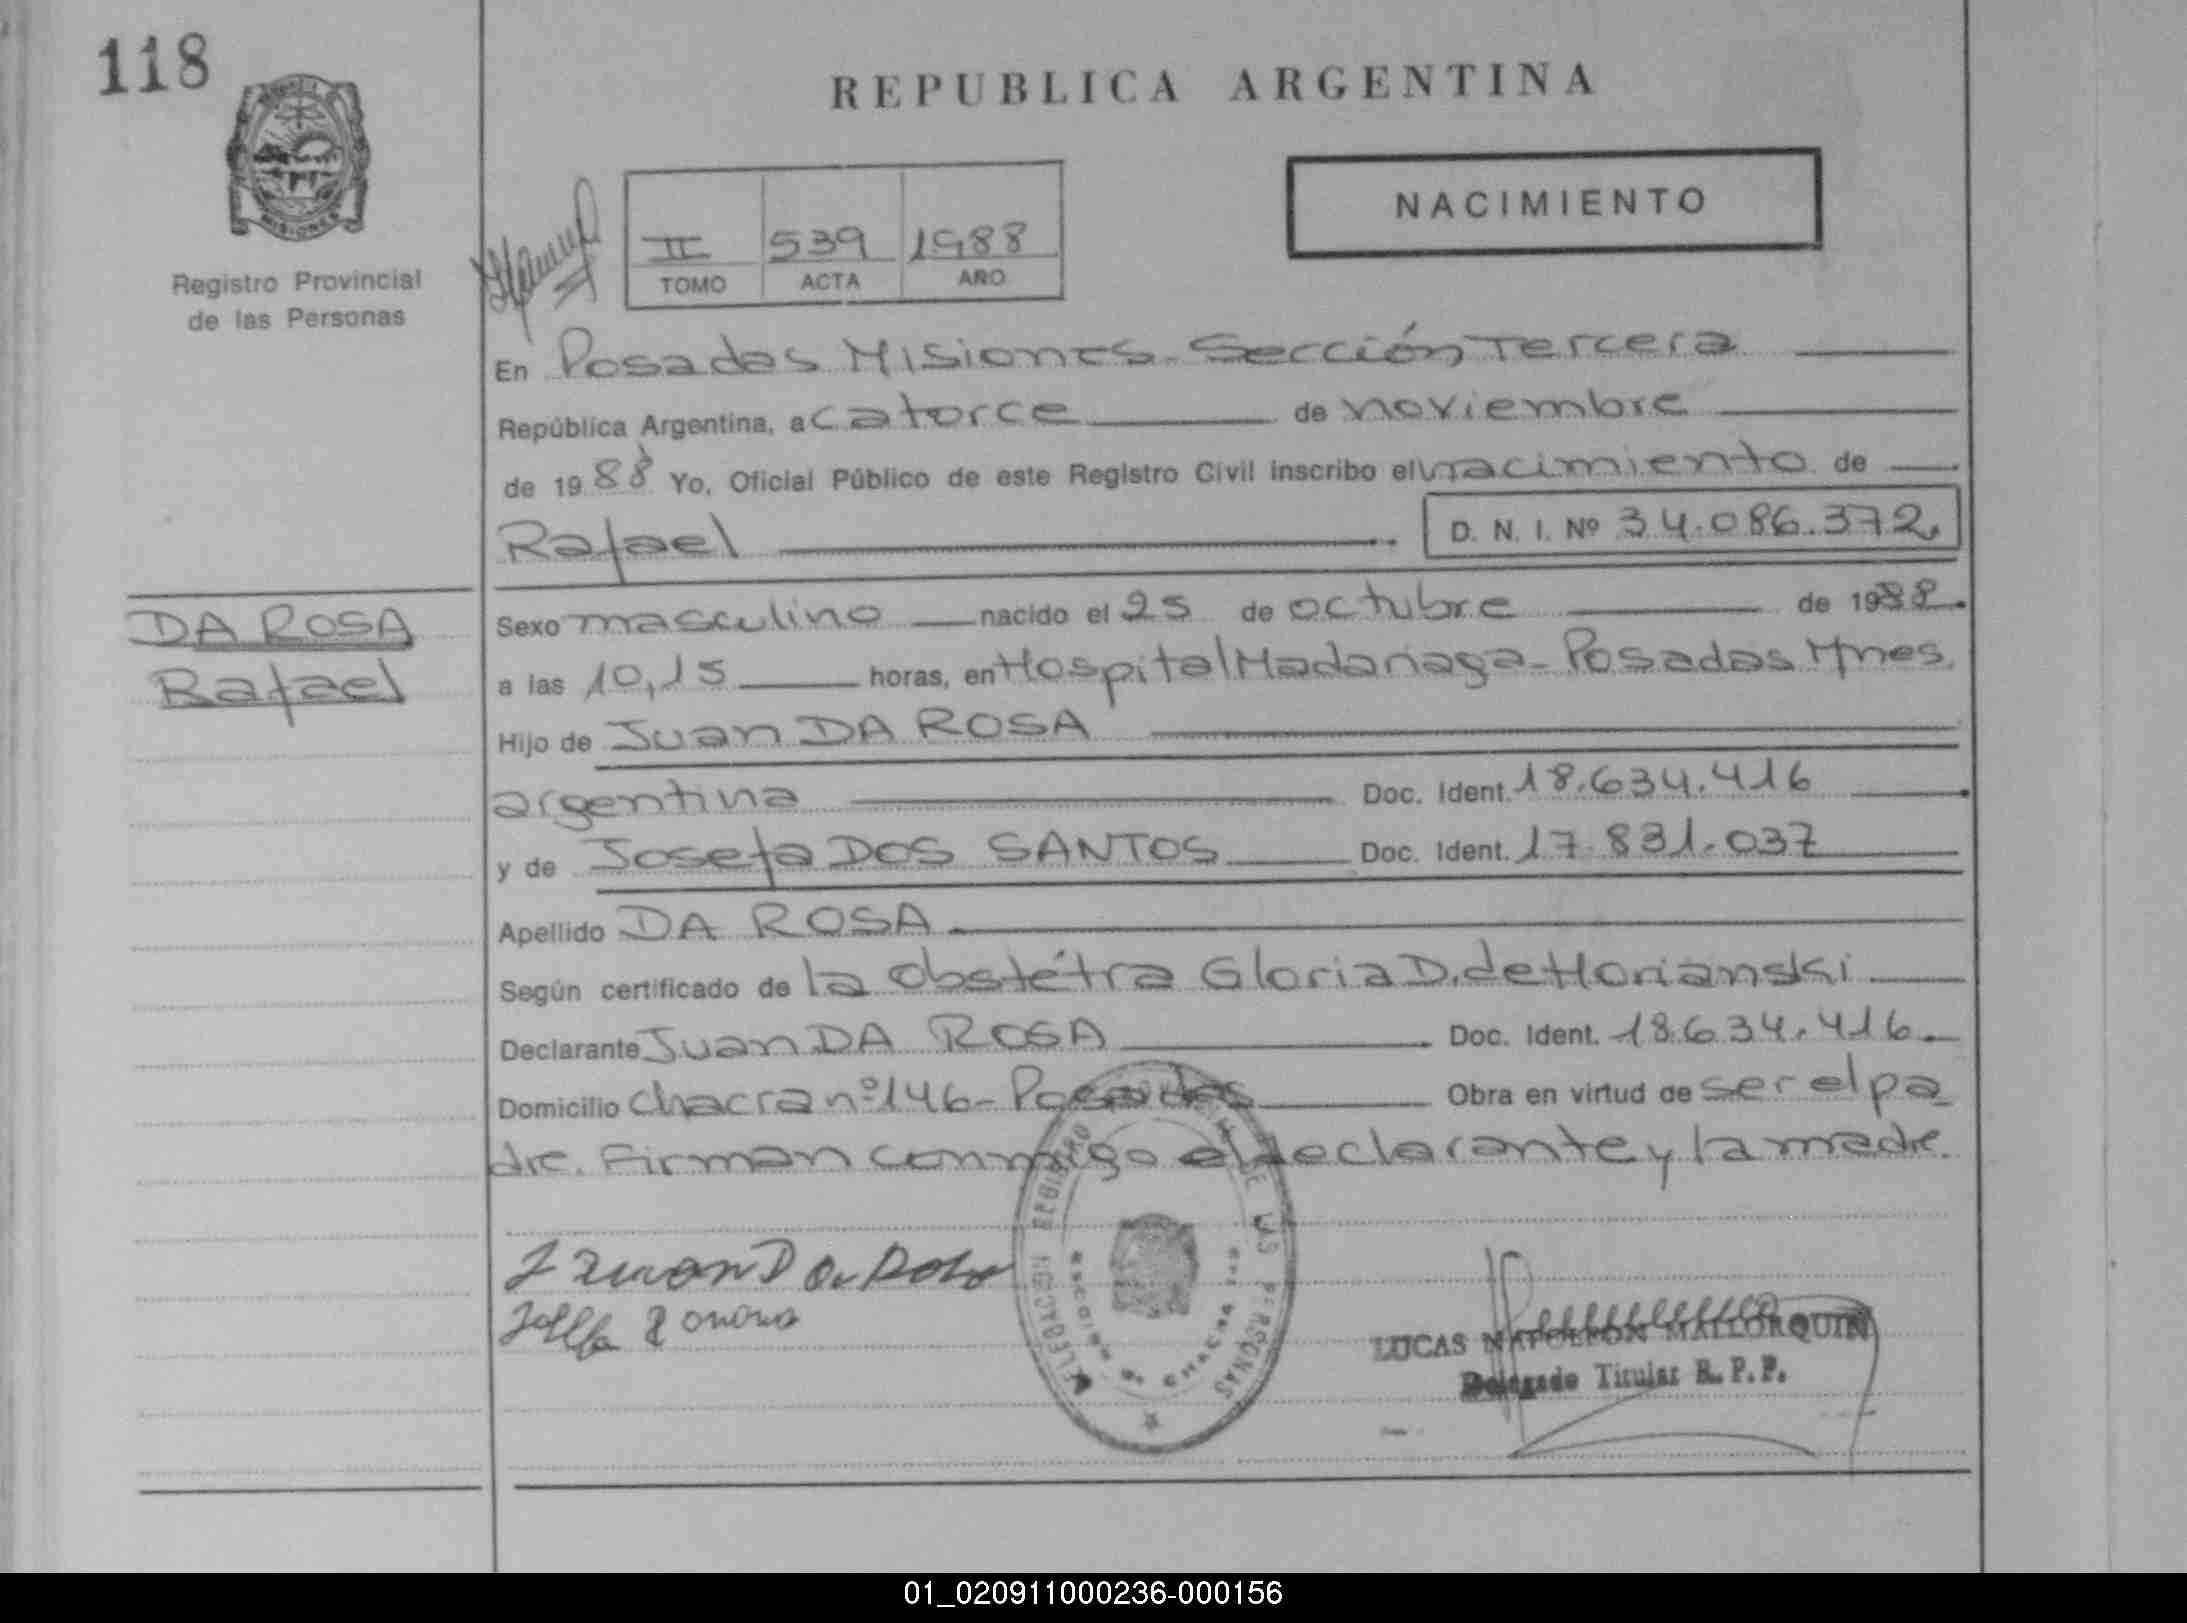 118
REPUBLICA ARGENTINA
MISIONES
Registro Provincial
de las Personas
NACIMIENTO
II 539 1988
TOMO ACTA AÑO
En Posadas Misiones - Sección Tercera
República Argentina, a catorce de noviembre
de 1988 Yo, Oficial Público de este Registro Civil inscribo el nacimiento de
Rafael D. N. I. Nº 34.086.372.
DA ROSA
Rafael
Sexo masculino nacido el 25 de octubre de 1988.
a las 10,15 horas, en Hospital Madariaga - Posadas Mnes.
Hijo de Juan DA ROSA
argentina Doc. Ident. 18.634.416
y de Josefa DOS SANTOS Doc. Ident. 17.831.037
Apellido DA ROSA
Según certificado de la obstétra Gloria D. de Horianski
Declarante Juan DA ROSA Doc. Ident. 18.634.416.
Domicilio chacra nº 146 - Posadas Obra en virtud de ser el pa
dre. Firman conmigo el declarante y la madre.
DELEGACION REGISTRO DE LAS PERSONAS
LUCAS NAPOLEON MALLORQUIN
Delegado Titular R. P. P.
01_020911000236-000156